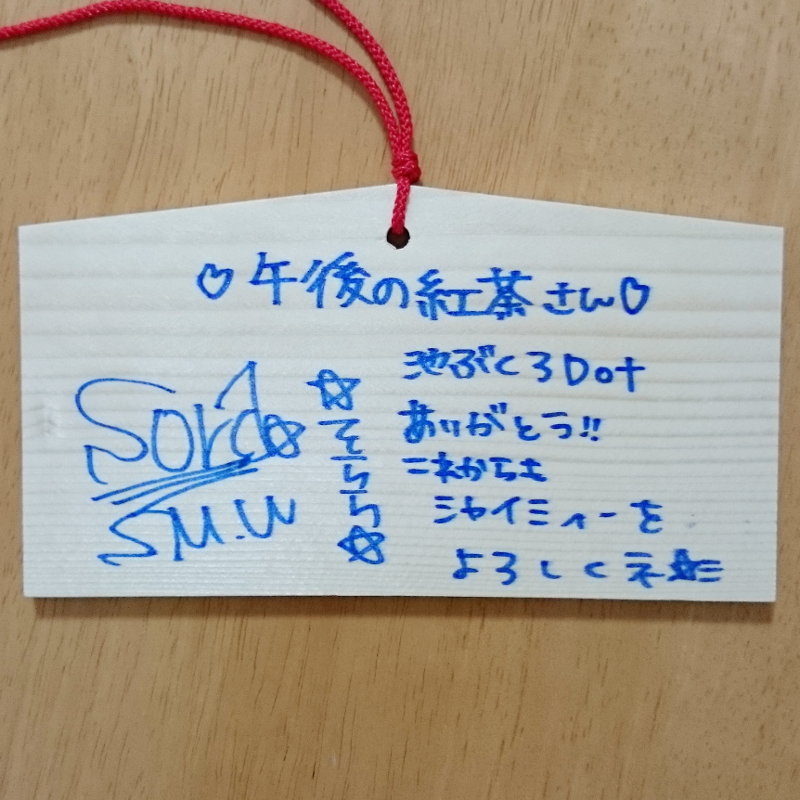 ♡午後の紅茶さん♡
池ぶくろDot
ありがとう!!
これからも
シャイミィーを
よろしくネ☆彡
☆そらら☆
S.M.W